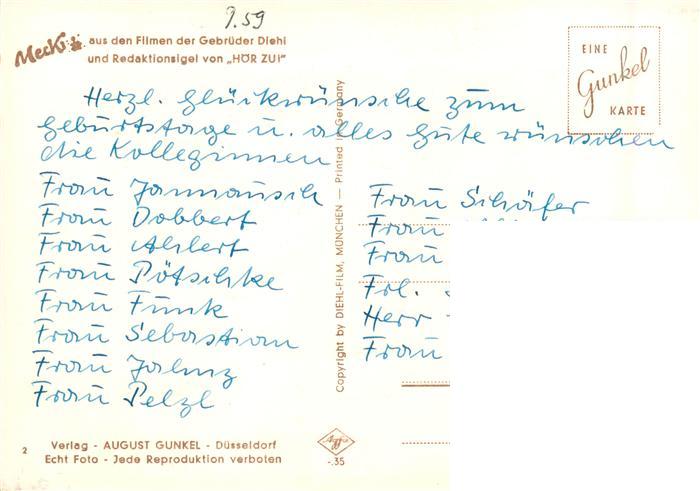 9.59
Mecki aus den Filmen der Gebrüder Diehl
und Redaktionsigel von „HÖR ZU!"
EINE
Gunkel
KARTE
Herzl. Glückwünsche zum
Geburtstage u. alles Gute wünschen
die Kolleginnen
Frau Jannausch
Frau Dobbert
Frau Ahlert
Frau Pötschke
Frau Funk
Frau Sebastian
Frau Jahnz
Frau Pelzl
Frau Schäfer
Frau
Frau
Frl.
Herr
Frau
Copyright by DIEHL-FILM, MÜNCHEN — Printed in Germany
2
Verlag - AUGUST GUNKEL - Düsseldorf
Echt Foto - Jede Reproduktion verboten
Agfa
-.35